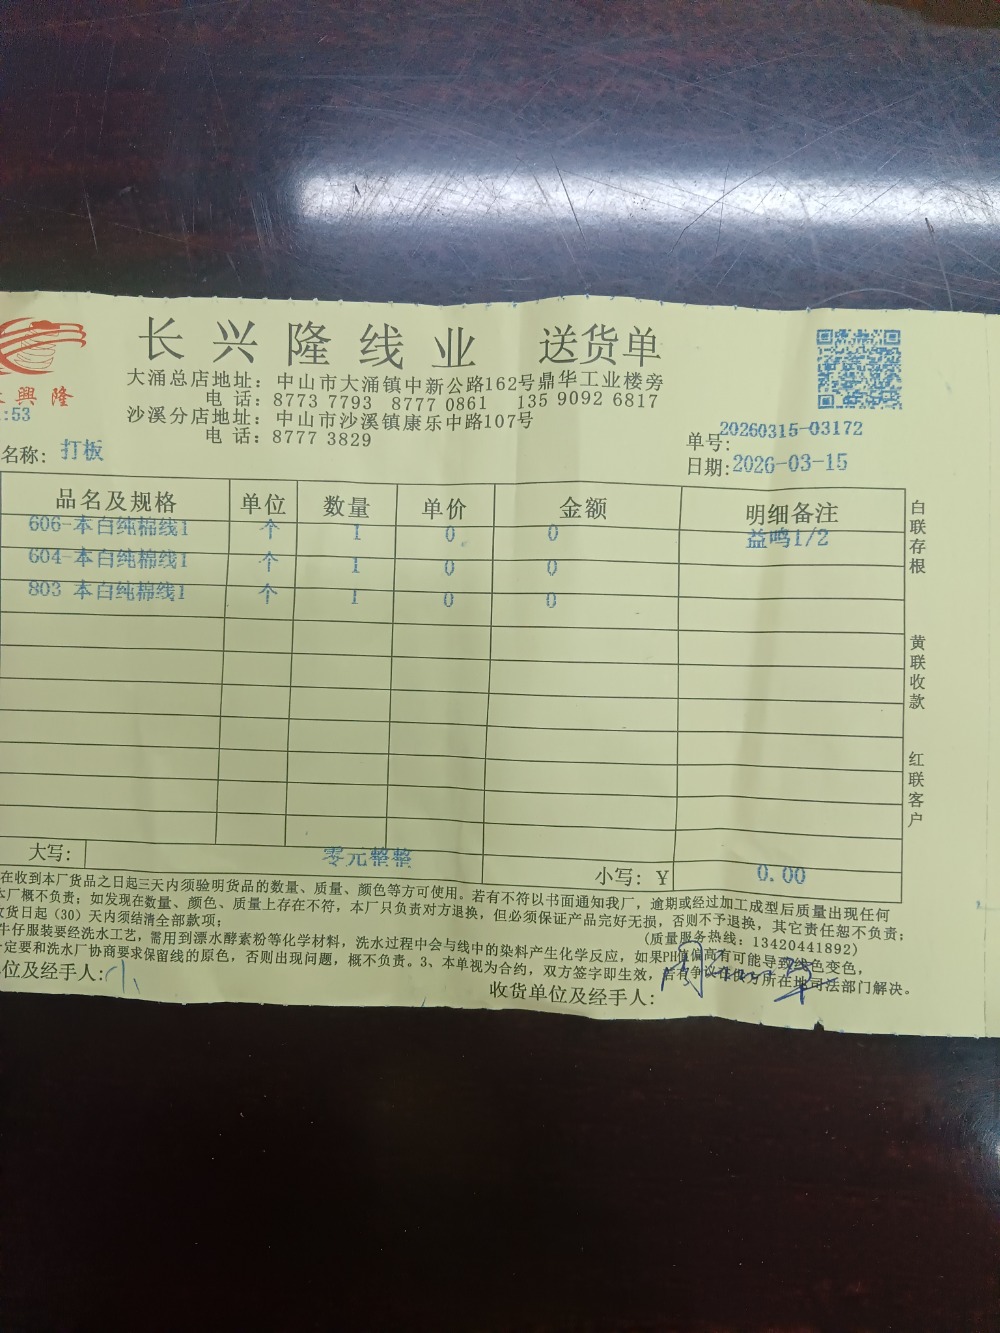 长兴隆线业 送货单
興隆
:53
大涌总店地址：中山市大涌镇中新公路162号鼎华工业楼旁
电 话：8773 7793 8777 0861 135 9092 6817
沙溪分店地址：中山市沙溪镇康乐中路107号
电 话：8777 3829
单号：20260315-03172
名称：打板
日期：2026-03-15
品名及规格 单位 数量 单价 金额 明细备注
606-本白纯棉线1 个 1 0 0 益鸣1/2
604-本白纯棉线1 个 1 0 0
803 本白纯棉线1 个 1 0 0
白联存根
黄联收款
红联客户
大写： 零元整整 小写：￥ 0.00
在收到本厂货品之日起三天内须验明货品的数量、质量、颜色等方可使用。若有不符以书面通知我厂，逾期或经过加工成型后质量出现任何
本厂概不负责；如发现在数量、颜色、质量上存在不符，本厂只负责对方退换，但必须保证产品完好无损，否则不予退换，其它责任恕不负责；
货日起（30）天内须结清全部款项； （质量服务热线：13420441892）
牛仔服装要经洗水工艺，需用到漂水酵素粉等化学材料，洗水过程中会与线中的染料产生化学反应，如果PH值偏高有可能导致线色变色，
定要和洗水厂协商要求保留线的原色，否则出现问题，概不负责。3、本单视为合约，双方签字即生效，若有争议在供方所在地司法部门解决。
位及经手人：
收货单位及经手人：